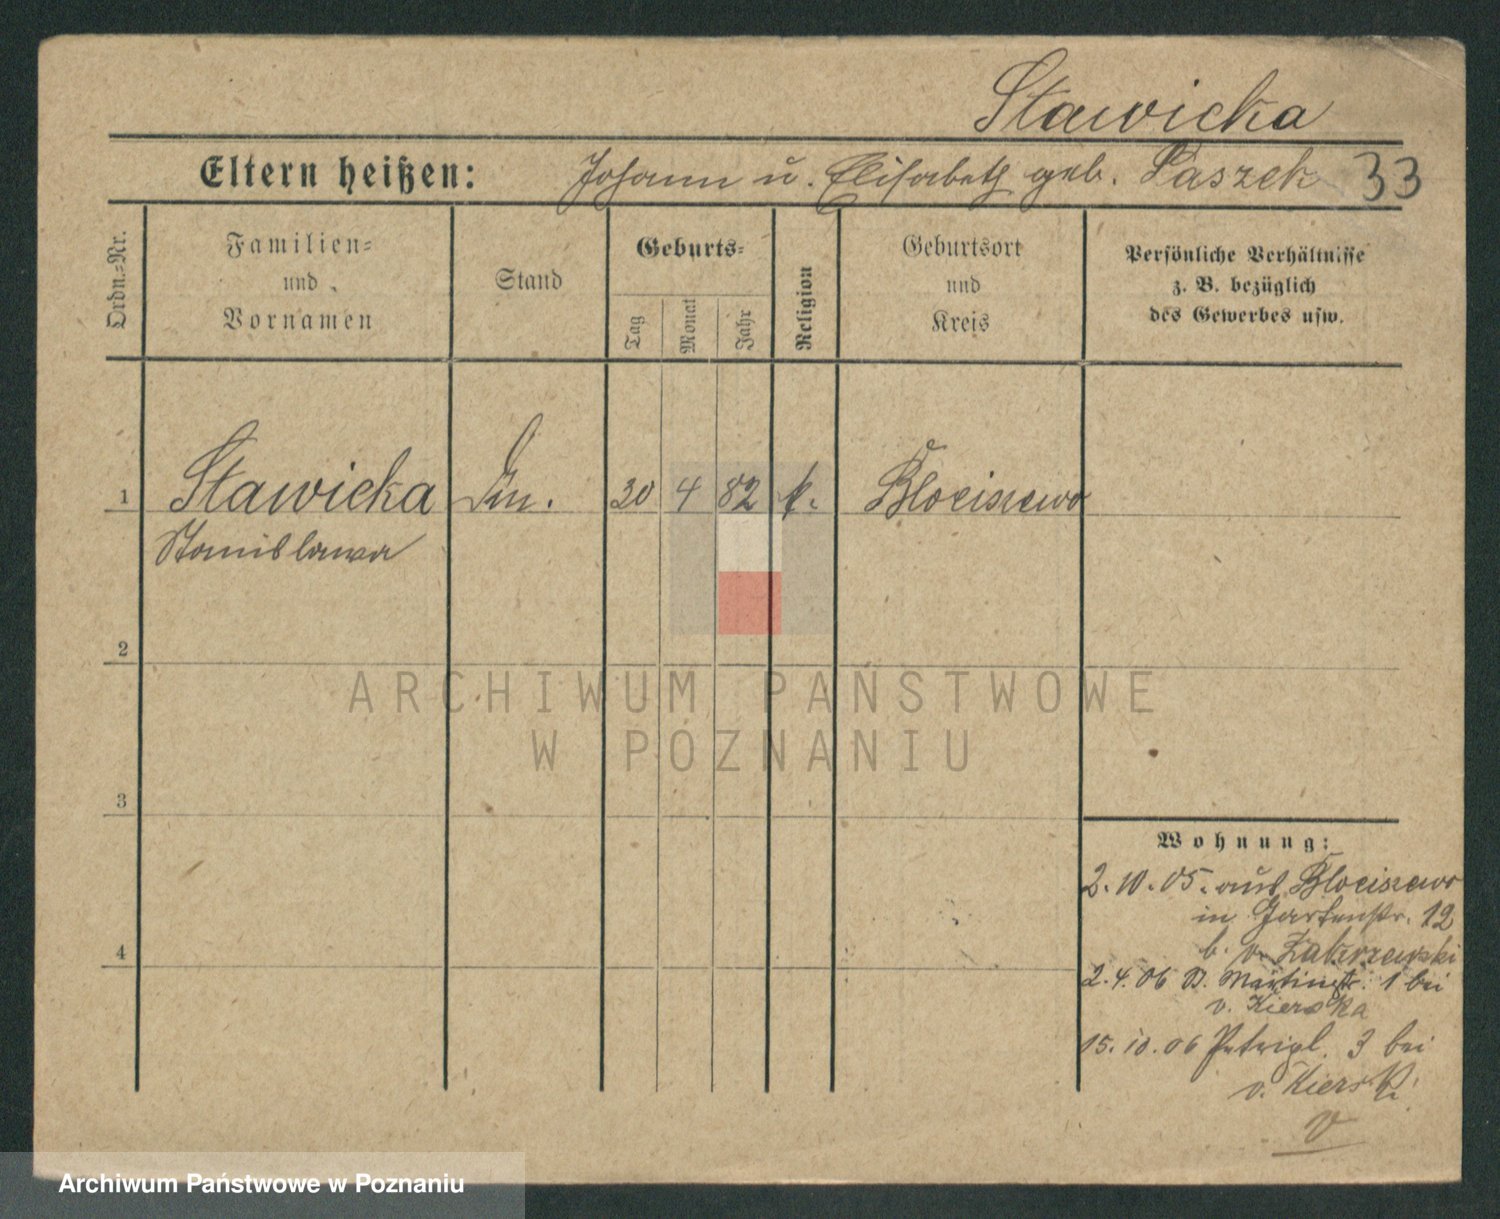 Stawicka
Eltern heißen: Johann u. Elisabeth geb. Paszek 33
Ordn.=Nr.
Familien=
und
Vornamen
Stand
Geburts=
Tag
Monat
Jahr
Religion
Geburtsort
und
Kreis
Persönliche Verhältnisse
z. B. bezüglich
des Gewerbes usw.
1 Stawicka 30 4 82 k. Blociszewo
Stanislawa
2
ARCHIWUM PAŃSTWOWE
W POZNANIU
3
Wohnung:
2.10.05. aus Blociszewo
in Gartenstr. 12
b. v. Zakrzewski
4
2.4.06 St. Martinstr. 1 bei
v. Kierska
15.10.06 Petripl. 3 bei
v. Kierski
V
Archiwum Państwowe w Poznaniu